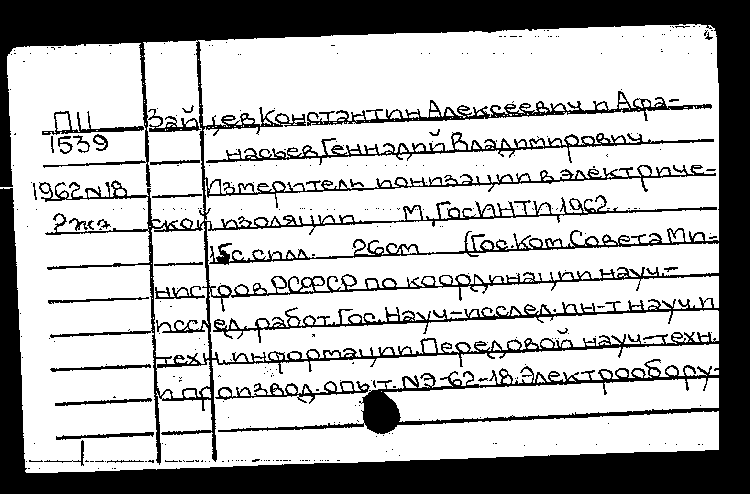 П11 Зайцев, Константин Алексеевич и Афа-
1539 насьев, Геннадий Владимирович
1962 N18 Измеритель ионизации в электриче-
2 экз. ской изоляции М., ГосИНТИ, 1962.
15с. с илл. 26cm (Гос. Ком. Совета Ми-
нистров РСФСР по координации науч.-
исслед. работ. Гос. Науч.-исслед. ин-т науч. и
техн. информации. Передовой науч.-техн.
и производ. опыт. N Э-62-18. Электрообору-